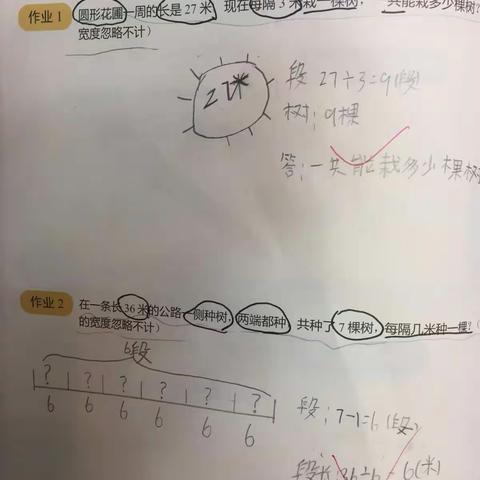 作业 1
圆形花圃一周的长是 27 米 现在每隔 3 米栽一棵树, 一共能栽多少棵树?
宽度忽略不计)
27米
段 27÷3=9(段)
树: 9棵
答:一共能栽多少棵树
作业 2
在一条长 36 米的公路一侧种树, 两端都种 共种了 7 棵树, 每隔几米种一棵? (
的宽度忽略不计)
6段
? ? ? ? ? ?
6 6 6 6 6 6
段: 7-1=6(段)
段长: 36÷6=6(米)